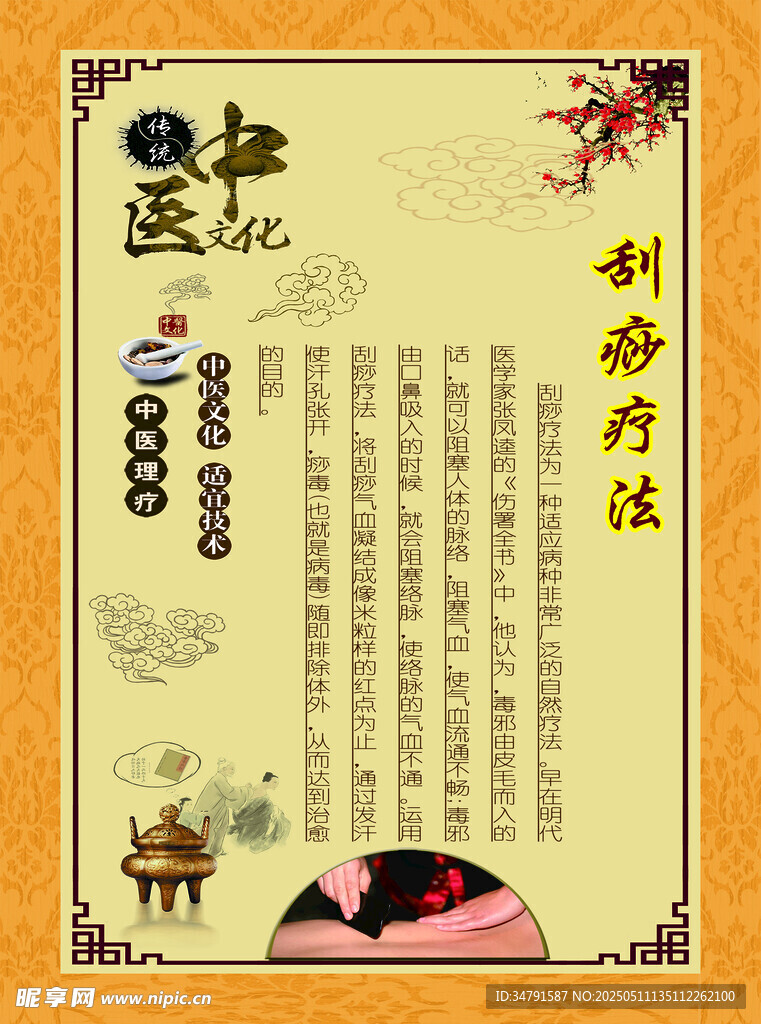 传统
中医
文化
刮痧疗法
刮痧疗法为一种适应病种非常广泛的自然疗法。早在明代
医学家张凤逵的《伤署全书》中，他认为，毒邪由皮毛而入的
话，就可以阻塞人体的脉络，阻塞气血，使气血流通不畅；毒邪
由口鼻吸入的时候，就会阻塞络脉，使络脉的气血不通。运用
刮痧疗法，将刮痧气血凝结成像米粒样的红点为止，通过发汗
使汗孔张开，痧毒(也就是病毒)随即排除体外，从而达到治愈
的目的。
中医文化 适宜技术
中医理疗
昵享网 www.nipic.cn
ID:34791587 NO:20250511135112262100